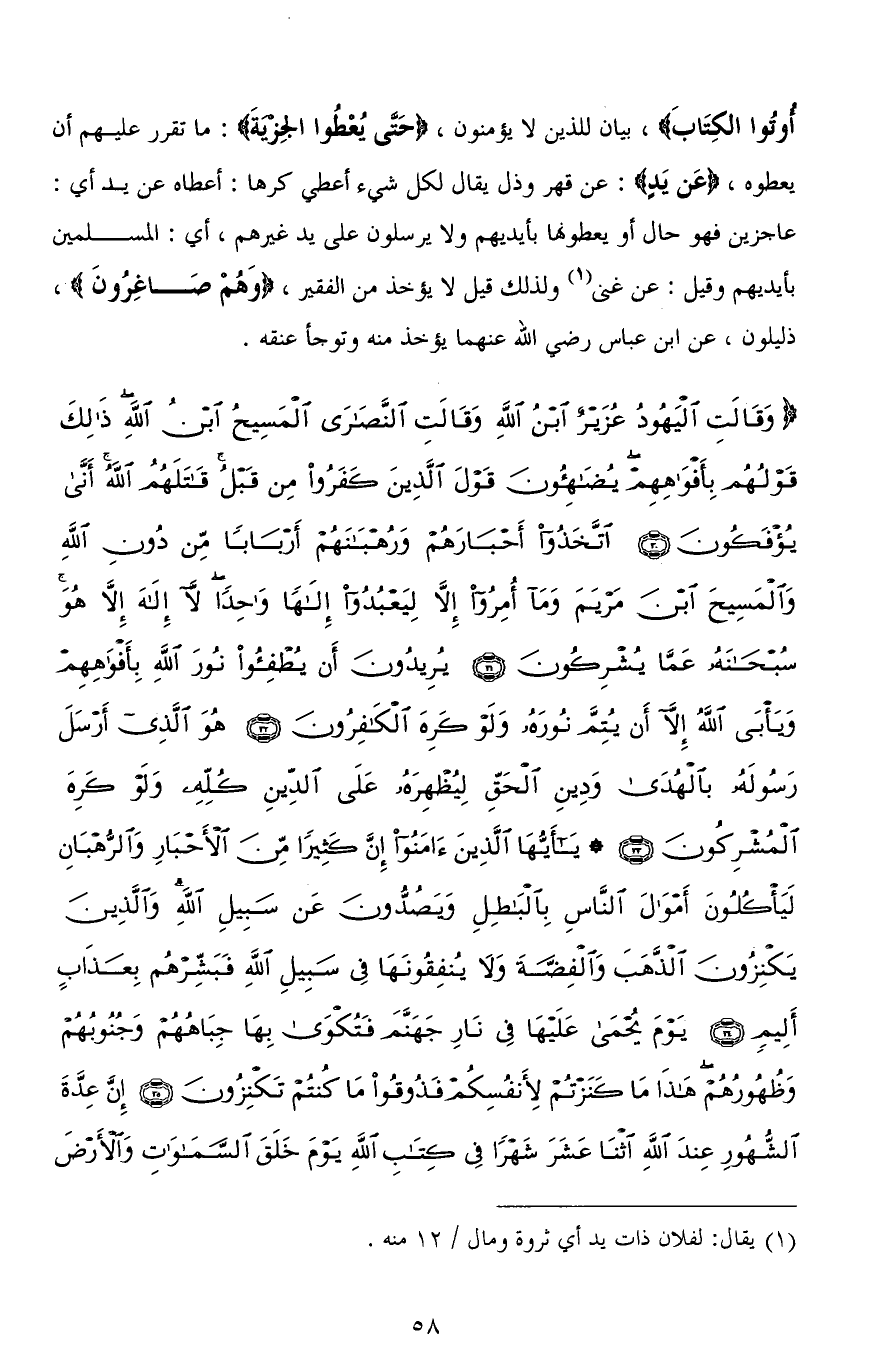 أُوتُوا الكِتَابَ﴾ ، بيان للذين لا يؤمنون ، ﴿حَتَّى يُعْطُوا الجِزْيَةَ﴾ : ما تقرر عليهم أن
يعطوه ، ﴿عَن يَدٍ﴾ : عن قهر وذل يقال لكل شيء أعطي كرها : أعطاه عن يد أي :
عاجزين فهو حال أو يعطونها بأيديهم ولا يرسلون على يد غيرهم ، أي : المسلمين
بأيديهم وقيل : عن غنى(١) ولذلك قيل لا يؤخذ من الفقير ، ﴿وَهُمْ صَاغِرُونَ﴾ ،
ذليلون ، عن ابن عباس رضي الله عنهما يؤخذ منه وتوجأ عنقه .
﴿ وَقَالَتِ ٱلْيَهُودُ عُزَيْرٌ ٱبْنُ ٱللَّهِ وَقَالَتِ ٱلنَّصَـٰرَى ٱلْمَسِيحُ ٱبْنُ ٱللَّهِۖ ذَٰلِكَ
قَوْلُهُم بِأَفْوَٰهِهِمْۖ يُضَـٰهِـُٔونَ قَوْلَ ٱلَّذِينَ كَفَرُوا۟ مِن قَبْلُۚ قَـٰتَلَهُمُ ٱللَّهُۚ أَنَّىٰ
يُؤْفَكُونَ ٣٠ ٱتَّخَذُوٓا۟ أَحْبَارَهُمْ وَرُهْبَـٰنَهُمْ أَرْبَابًا مِّن دُونِ ٱللَّهِ
وَٱلْمَسِيحَ ٱبْنَ مَرْيَمَ وَمَآ أُمِرُوٓا۟ إِلَّا لِيَعْبُدُوٓا۟ إِلَـٰهًا وَٰحِدًاۖ لَّآ إِلَـٰهَ إِلَّا هُوَۚ
سُبْحَـٰنَهُۥ عَمَّا يُشْرِكُونَ ٣١ يُرِيدُونَ أَن يُطْفِـُٔوا۟ نُورَ ٱللَّهِ بِأَفْوَٰهِهِمْ
وَيَأْبَى ٱللَّهُ إِلَّآ أَن يُتِمَّ نُورَهُۥ وَلَوْ كَرِهَ ٱلْكَـٰفِرُونَ ٣٢ هُوَ ٱلَّذِىٓ أَرْسَلَ
رَسُولَهُۥ بِٱلْهُدَىٰ وَدِينِ ٱلْحَقِّ لِيُظْهِرَهُۥ عَلَى ٱلدِّينِ كُلِّهِۦ وَلَوْ كَرِهَ
ٱلْمُشْرِكُونَ ٣٣ * يَـٰٓأَيُّهَا ٱلَّذِينَ ءَامَنُوٓا۟ إِنَّ كَثِيرًا مِّنَ ٱلْأَحْبَارِ وَٱلرُّهْبَانِ
لَيَأْكُلُونَ أَمْوَٰلَ ٱلنَّاسِ بِٱلْبَـٰطِلِ وَيَصُدُّونَ عَن سَبِيلِ ٱللَّهِۗ وَٱلَّذِينَ
يَكْنِزُونَ ٱلذَّهَبَ وَٱلْفِضَّةَ وَلَا يُنفِقُونَهَا فِى سَبِيلِ ٱللَّهِ فَبَشِّرْهُم بِعَذَابٍ
أَلِيمٍ ٣٤ يَوْمَ يُحْمَىٰ عَلَيْهَا فِى نَارِ جَهَنَّمَ فَتُكْوَىٰ بِهَا جِبَاهُهُمْ وَجُنُوبُهُمْ
وَظُهُورُهُمْۖ هَـٰذَا مَا كَنَزْتُمْ لِأَنفُسِكُمْ فَذُوقُوا۟ مَا كُنتُمْ تَكْنِزُونَ ٣٥ إِنَّ عِدَّةَ
ٱلشُّهُورِ عِندَ ٱللَّهِ ٱثْنَا عَشَرَ شَهْرًا فِى كِتَـٰبِ ٱللَّهِ يَوْمَ خَلَقَ ٱلسَّمَـٰوَٰتِ وَٱلْأَرْضَ
(١) يقال: لفلان ذات يد أي ثروة ومال / ١٢ منه .
٥٨